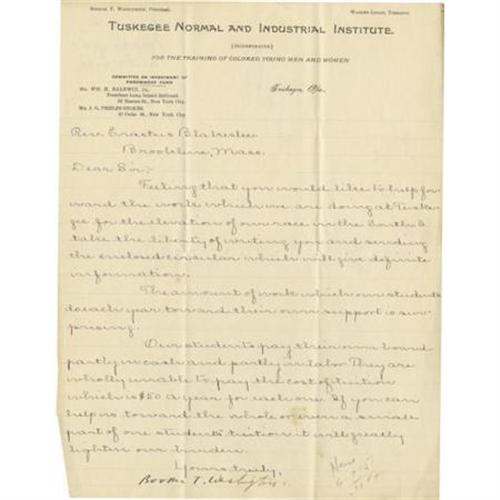 BOOKER T. WASHINGTON, PRINCIPAL. WARREN LOGAN, TREASURER.
TUSKEGEE NORMAL AND INDUSTRIAL INSTITUTE.
(INCORPORATED)
FOR THE TRAINING OF COLORED YOUNG MEN AND WOMEN
COMMITTEE ON INVESTMENT OF
ENDOWMENT FUND
MR. WM. H. BALDWIN, JR.,
President Long Island Railroad
New York City.
MR. J. G. PHELPS STOKES,
47 Cedar St., New York City
Tuskegee, Ala.
Rev. Erastus Blakeslee
Brookline, Mass.
Dear Sir:-
Feeling that you would like to help for-
ward the work which we are doing at Tuske-
gee for the elevation of our race in the South, I
take the liberty of writing you and sending
the enclosed circular which will give definite
information.
The amount of work which our students
do each year toward their own support is sur-
prising.
Our students pay their own board
partly in cash and partly in labor. They are
wholly unable to pay the cost of tuition
which is $50 a year for each one. If you can
help us toward the whole or even a small
part of one student's tuition it will greatly
lighten our burden.
Yours truly,
Booker T. Washington.